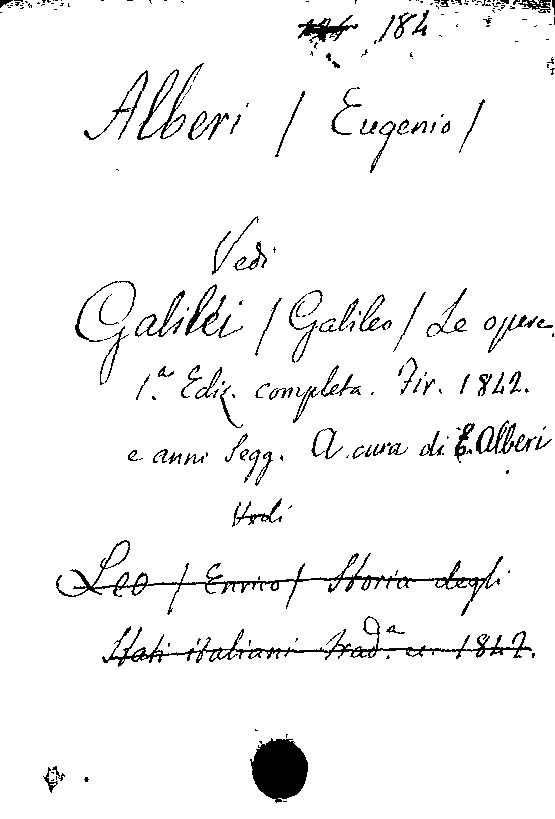 184
Alberi / Eugenio /
Vedi
Galilei / Galileo / Le opere.
1.ª Ediz. completa. Fir. 1842.
e anni Segg. A cura di E. Alberi
Vedi
Leo / Enrico / Storia degli
Stati italiani trad.ª 1842.